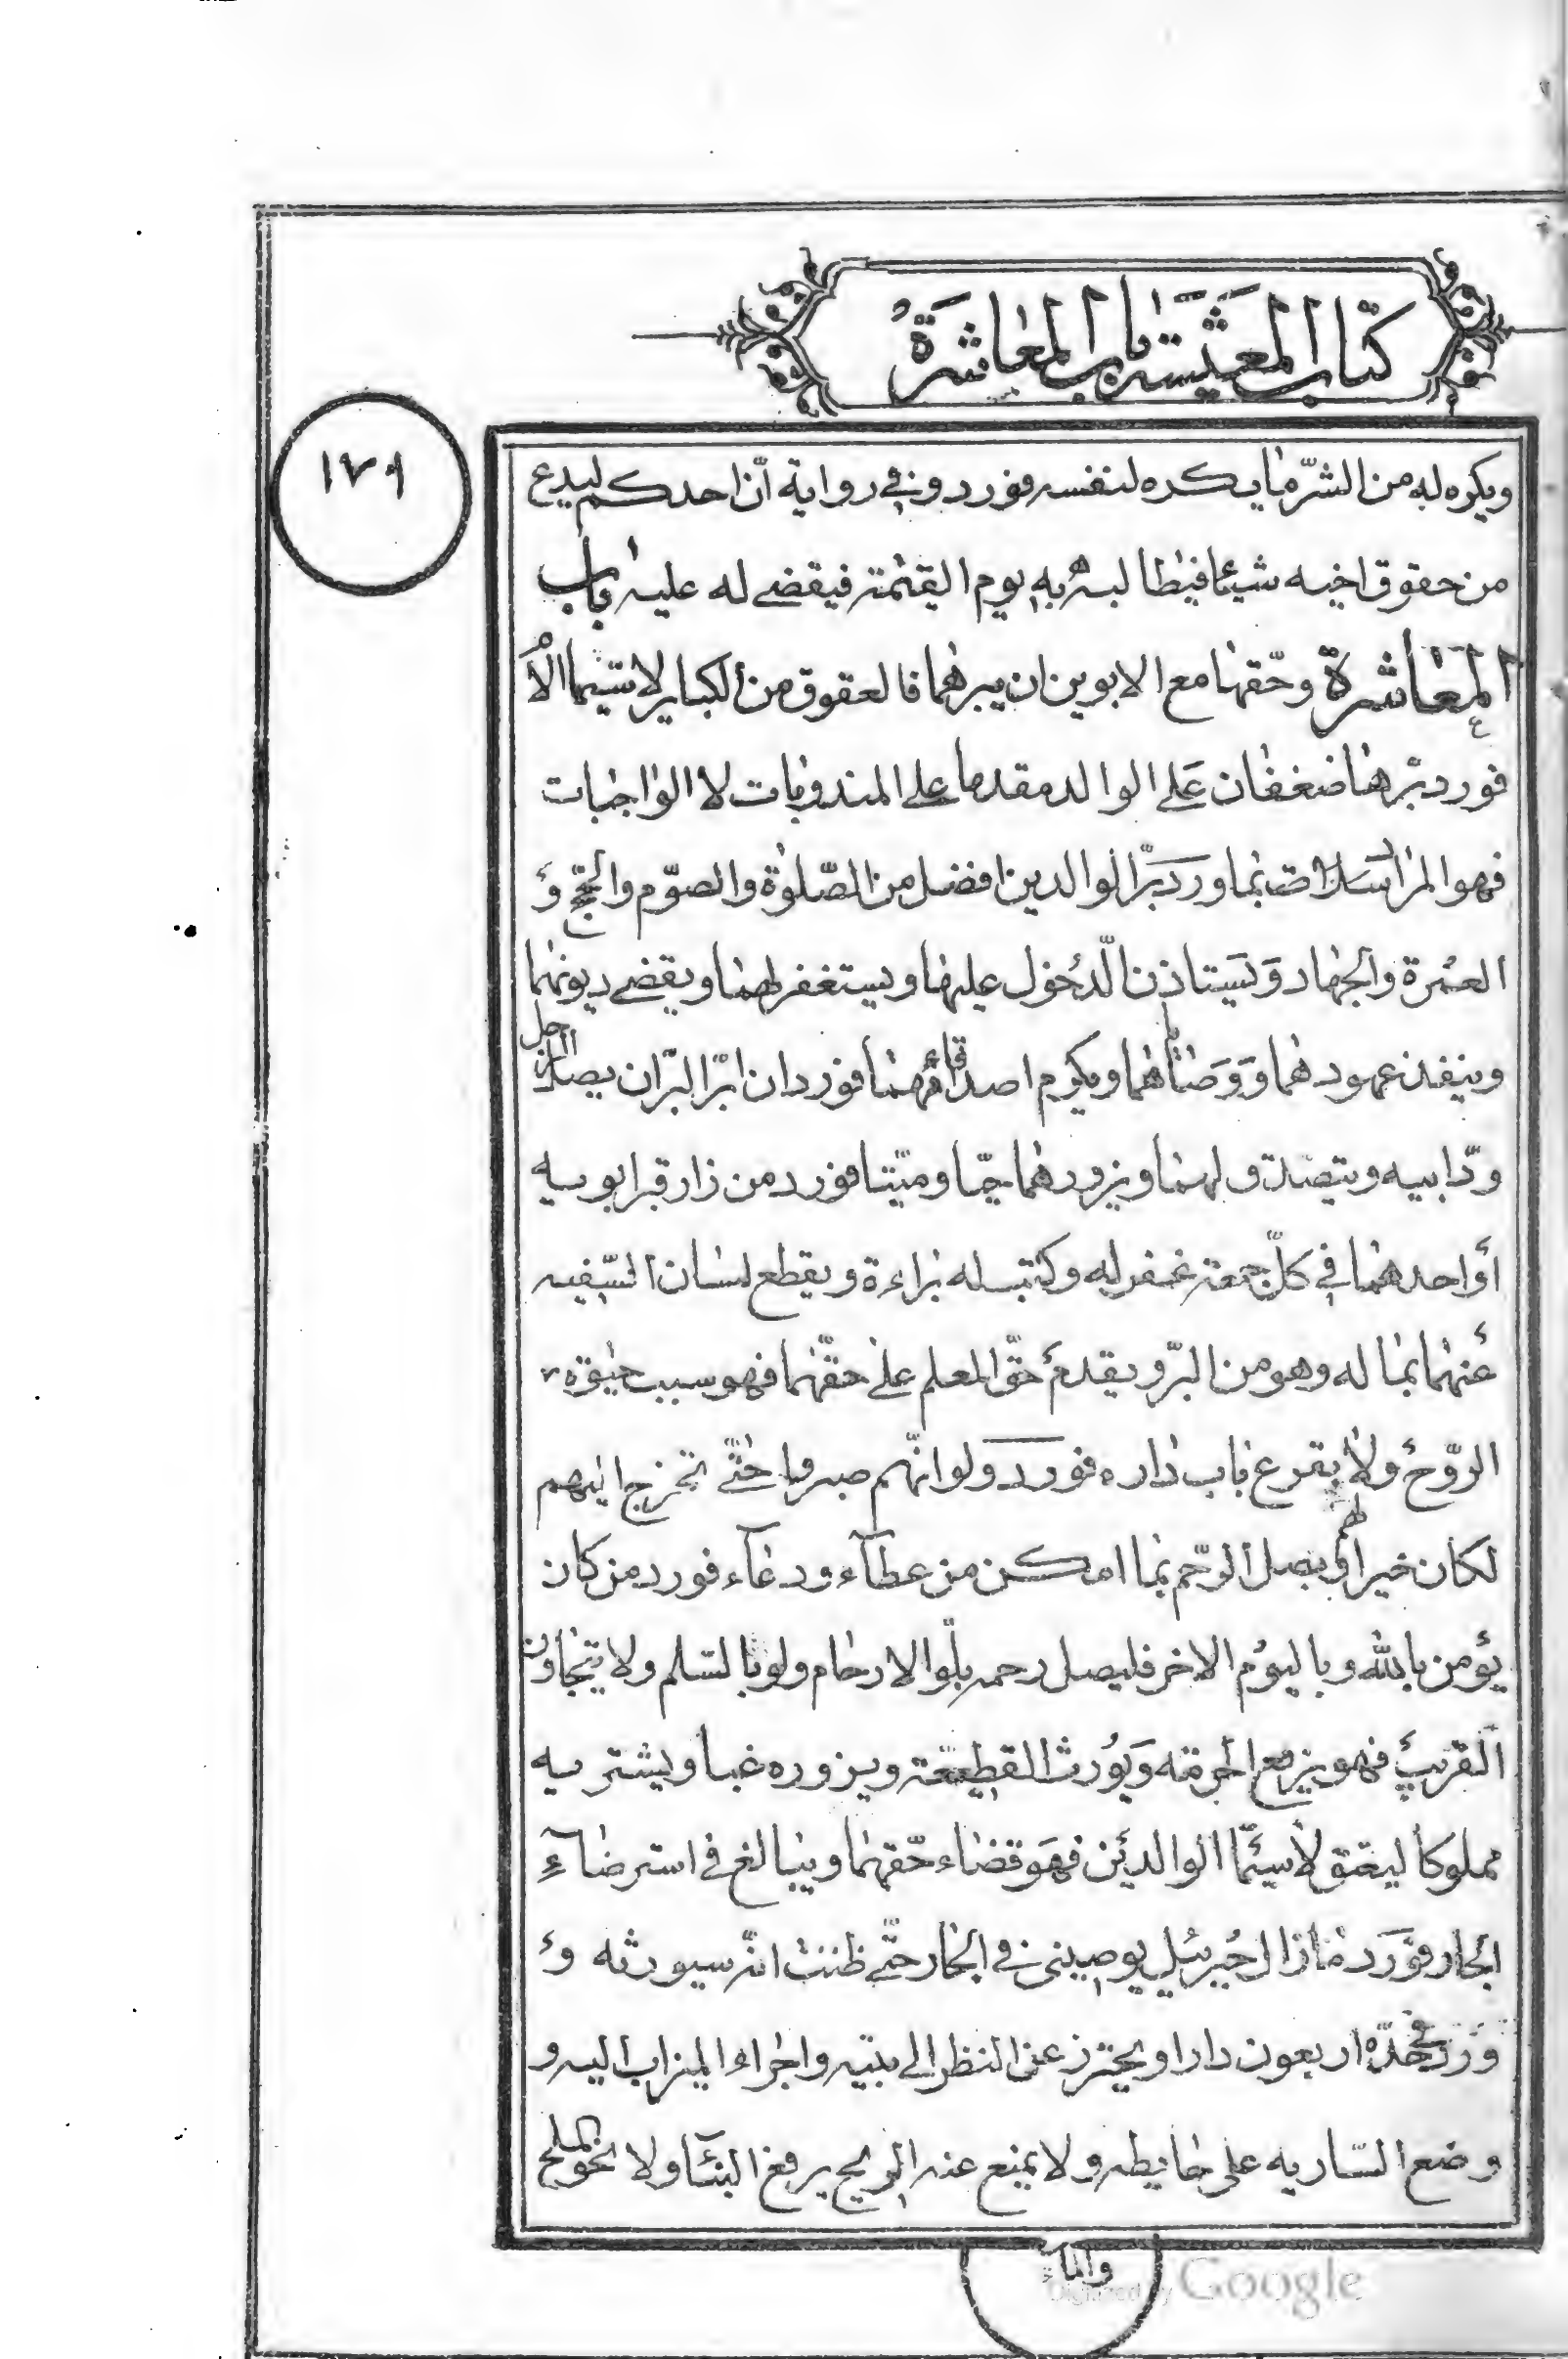 كتاب المعيشة باب المعاشرة
١٧٩
ويكره له من الشرّ ما يكره لنفسه فورد وفي رواية انّ احدكم ليدع
من حقوق اخيه شيئا فيطالبه به يوم القيٰمة فيقضي له عليه باب
المعاشرة وحقها مع الابوين ان يبرهما فالعقوق من الكباير لا سيّما الأم
فورد برّها ضعفان على الوالد مقدما على المندوبات لا الواجبات
فهو المراد بما ورد برّ الوالدين افضل من الصّلوٰة والصوّم والحجّ و
العمرة والجهاد ويستاذن الدّخول عليها ويستغفر لهما ويقضي ديونهما
وينفذ عهودهما ووصاياهما ويكرم اصدقائهما فورد ان ابرّ البرّ ان يصل الرجل
ودّ ابيه ويتصدق لهما ويزورهما حيّا وميّتا فورد من زار قبر ابويه
أو احدهما في كلّ جمعة غفر له وكتب له براءة ويقطع لسان السّفيه
عنهما بماله وهو من البرّ ويقدم حقّ المعلم على حقّهما فهو سبب حيٰوة
الرّوح ولا يقرع باب داره فورد ولو انّهم صبروا حتّى تخرج اليهم
لكان خيرا لهم ويصل الرّحم بما امكن من عطآء ودعآء فورد من كان
يؤمن بالله وباليوم الاخر فليصل رحمه بلّوا الارحام ولو بالسّلم ولا يتجاور
القريب فهو يرفع الحرمة ويورث القطيعة ويزوره غبا ويشتريه
مملوكا ليعتق لا سيّما الوالدين فهو قضاء حقّهما ويبالغ في استرضآء
الجار فورد ما زال جبرئيل يوصيني في الجار حتّى ظننت انّه سيورثه و
ورد في حدّه اربعون دارا ويحترز عن النظر الى بيته واجراء الميزاب اليه و
وضع السّاريه على حايطه ولا يمنع عنه الريح برفع البنآء ولا نحو الملح
والماء
Digitized by Google